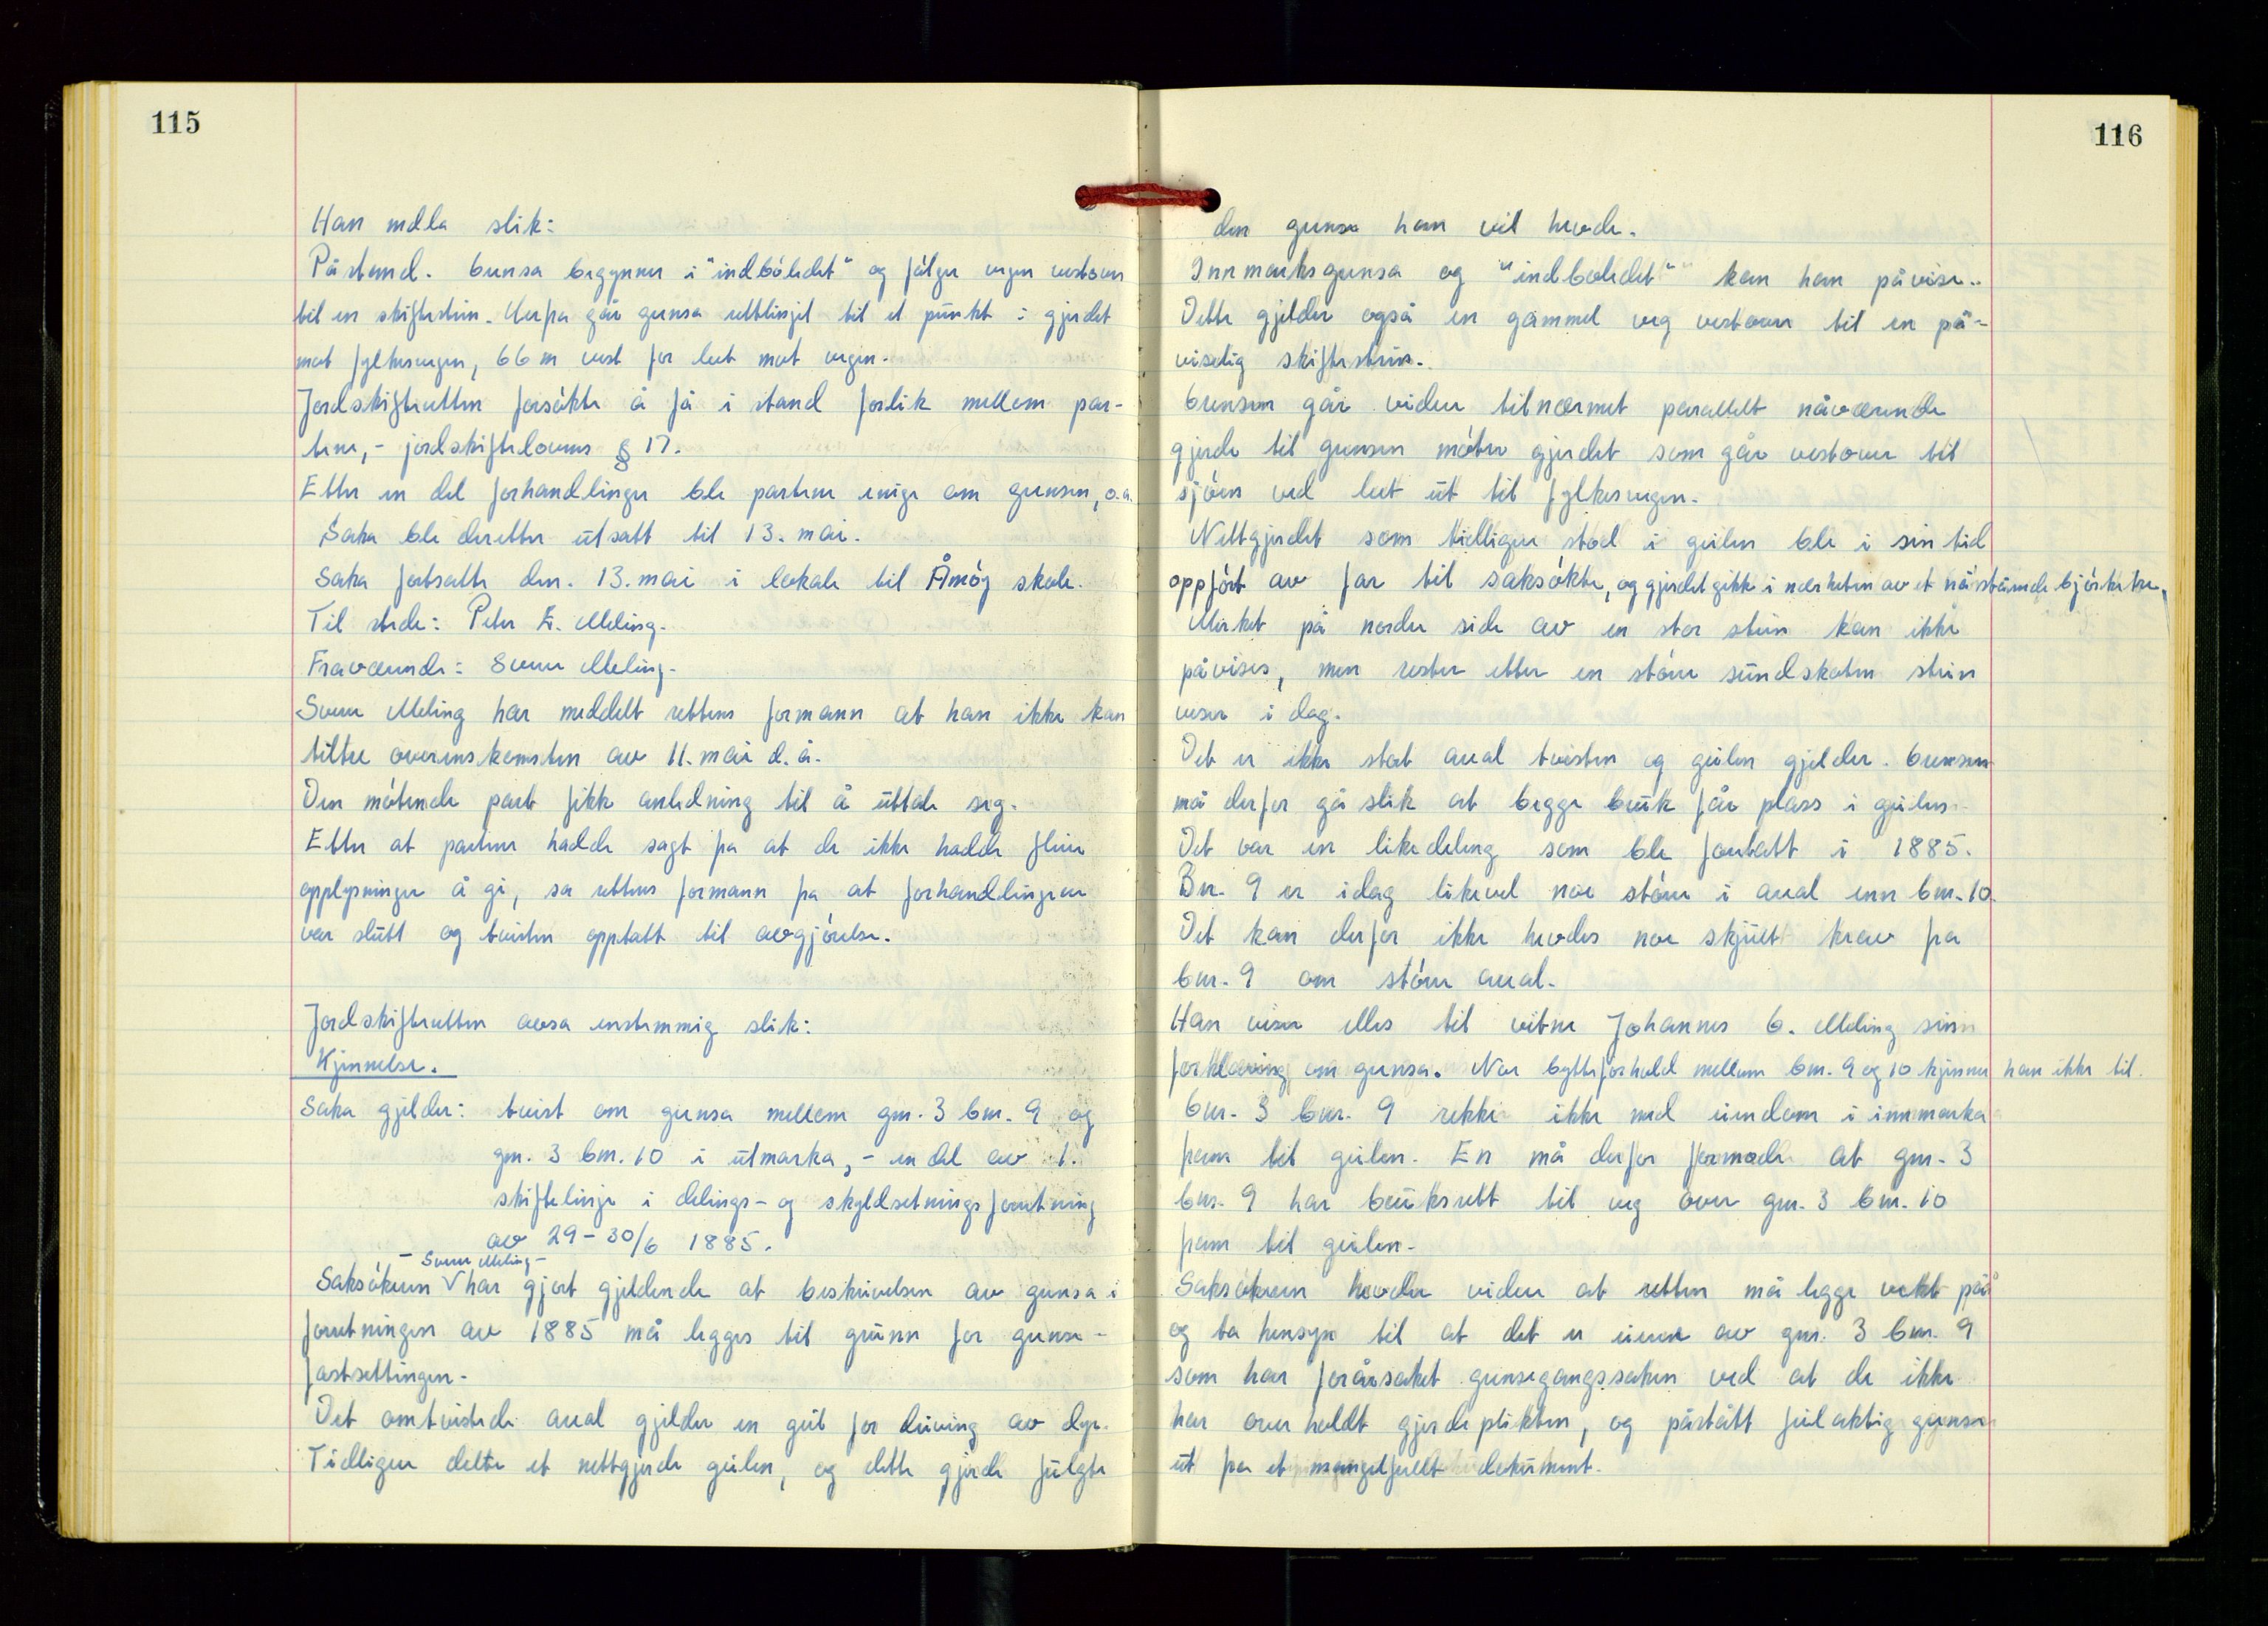 115
Han nedla slik:
Påstand. Grensa begynner i "indbóledet" og fölger vegen vestover
til en skiftestein. Herfra går grensa rettlinjet til et punkt i gjerdet
mot fylkesvegen, 66 m vest for leet mot vegen.
Jordskifteretten forsökte å få i stand forlik mellem par-
tene, - jordskiftelovens § 17.
Etter en del forhandlinger ble partene enige om grensen, o.a.
Saka ble deretter utsatt til 13. mai.
Saka fortsatte den. 13. mai i lokale til Åmöy skole.
Til stede: Peter E. Meling.
Fraværende: Sverre Meling.
Sverre Meling har meddelt rettens formann at han ikke kan
tiltre overenskomsten av 11. mai d.å.
Den mötende part fikk anledning til å uttale seg.
Etter at partene hadde sagt fra at de ikke hadde flere
opplysninger å gi, sa rettens formann fra at forhandlingene
var slutt og tvisten opptatt til avgjörelse.
Jordskifteretten avsa enstemmig slik:
Kjennelse.
Saka gjelder: tvist om grensa mellem gnr. 3 bnr. 9 og
gnr. 3 bnr. 10 i utmarka, - en del av 1.
skiftelinje i delings- og skyldsetningsforretning
av 29-30/6 1885.
- Sverre Meling -
Saksökeren V har gjort gjeldende at beskrivelsen av grensa i
forretningen av 1885 må legges til grunn for grense-
fastsettingen.
Det omtvistede areal gjelder en geil for driving av dyr.
Tidligere delte et nettgjerde geilen, og dette gjerde fulgte
116
den grense han vil hevde.
Innmarksgrensa og "indboledet" kan han påvise.
Dette gjelder også en gammel veg vestover til en på-
viselig skiftestein.
Grensen går videre tilnærmet parallelt nåværende
gjerde til grensen möter gjerdet som går vestover til
sjöen ved leet ut til fylkesvegen.
Nettgjerdet som tidligere stod i geilen ble i sin tid
oppfört av far til saksökte, og gjerdet gikk i nærheten av et nåstående björketre.
Merket på nordre side av en stor stein kan ikke
påvises, men rester etter en störe sundskoten stein
viser i dag.
Det er ikke stort areal tvisten og geilen gjelder. Grensen
må derfor gå slik at begge bruk får plass i geilen.
Det var en likedeling som ble foretatt i 1885.
Bnr. 9 er idag likevel noe störe i areal enn bnr. 10.
Det kan derfor ikke hevdes noe skjult krav fra
bnr. 9 om störe areal.
Han viser elles til vitne Johannes G. Meling sinn
forklaring om grensa. Noe bytteforhold mellem bnr. 9 og 10 kjenner han ikke til.
Gnr. 3 bnr. 9 rekker ikke med eiendom i innmarka
fram til geilen. En må derfor formode at gnr. 3
bnr. 9 har bruksrett til veg over gnr. 3 bnr. 10
fram til geilen.
Saksökeren hevder videre at retten må legge vekt på
og ta hensyn til at det er eierne av gnr. 3 bnr. 9
som har forårsaket grensegangssaken ved at de ikke
har overholdt gjerdeplikten, og påstått feilaktig grense
ut fra et mangelfullt dokument.